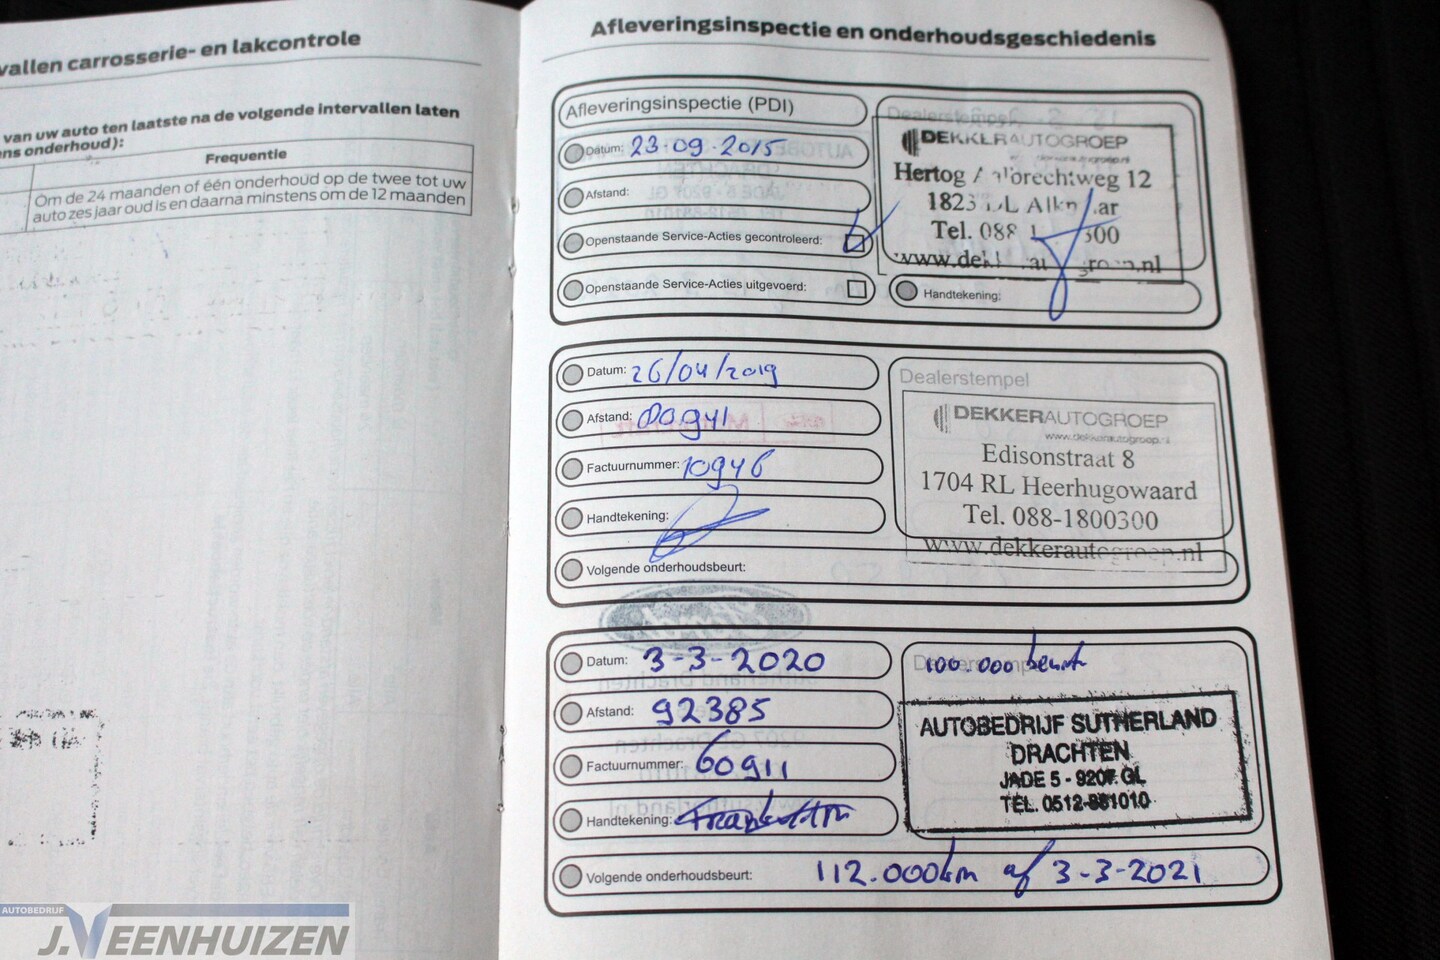 vallen carrosserie- en lakcontrole
van uw auto ten laatste na de volgende intervallen laten
ens onderhoud):
Frequentie
Om de 24 maanden of één onderhoud op de twee tot uw
auto zes jaar oud is en daarna minstens om de 12 maanden
Afleveringsinspectie en onderhoudsgeschiedenis
Afleveringsinspectie (PDI)
Datum: 23-09-2015
Afstand:
Openstaande Service-Acties gecontroleerd:
Openstaande Service-Acties uitgevoerd:
Dealerstempel
DEKKERAUTOGROEP
Hertog Albrechtweg 12
1823 DL Alkmaar
Tel. 088 1 300
www.dekkerautogroep.nl
Handtekening:
Datum: 26/04/2019
Afstand: 80941
Factuurnummer: 10946
Handtekening:
Volgende onderhoudsbeurt:
Dealerstempel
DEKKERAUTOGROEP
www.dekkerautogroep.nl
Edisonstraat 8
1704 RL Heerhugowaard
Tel. 088-1800300
www.dekkerautogroep.nl
Datum: 3-3-2020
Afstand: 92385
Factuurnummer: 60911
Handtekening:
Volgende onderhoudsbeurt: 112.000km of 3-3-2021
Dealerstempel
100.000 beurt
AUTOBEDRIJF SUTHERLAND
DRACHTEN
JADE 5 - 9207 GL
TEL. 0512-881010
AUTOBEDRIJF
J. VEENHUIZEN